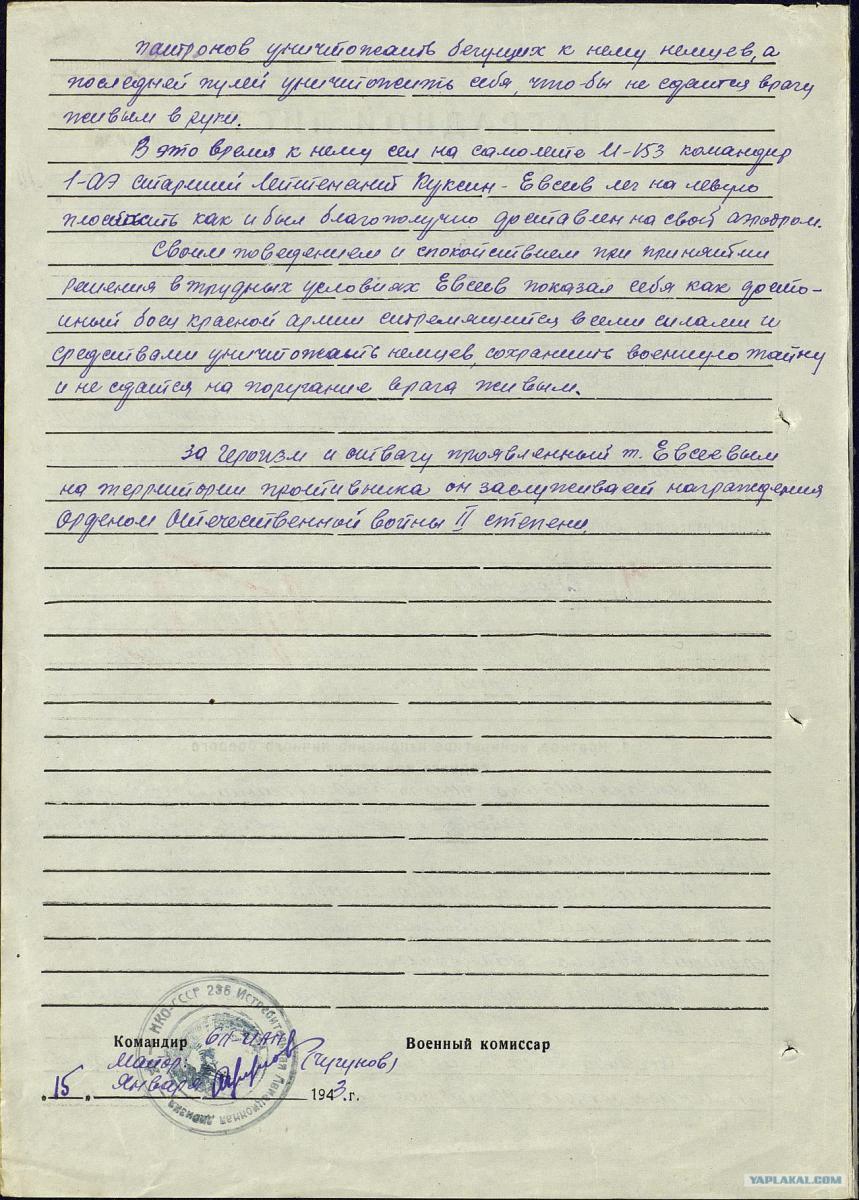 патронов уничтожать бегущих к нему немцев, а
последней пулей уничтожить себя, что бы не сдатся врагу
живым в руки.
В это время к нему сел на самолете И-153 командир
1-аэ старший лейтенант Куксин - Евсеев лег на левую
плоскость как и был благополучно доставлен на свой аэродром.
Своим поведением и спокойствием при принятии
решения в трудных условиях Евсеев показал себя как достой-
ный боец красной армии стремящийся всеми силами и
средствами уничтожать немцев, сохранить военную тайну
и не сдатся на поругание врага живым.
За героизм и отвагу проявленный т. Евсеевым
на территории противника он заслуживает награждения
Орденом Отечественной войны II степени.
НКО-СССР 236 Истребительная Авиационная дивизия
Командир ИАП Военный комиссар
Майор (Чугунов)
15 Января 1943 г.
YAPLAKAL.COM